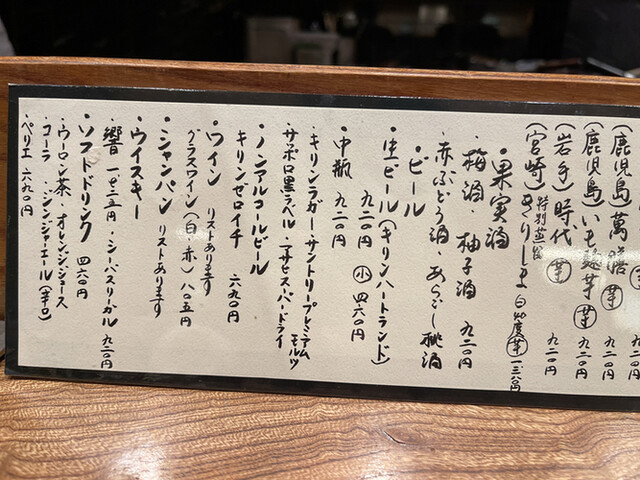 (鹿児島)萬膳 芋 九二〇円
(鹿児島)いも麹芋 芋 九二〇円
(岩手)時代 芋 九二〇円
(宮崎)きりしま 特別蒸留 白 40度 芋 一三八〇円
・果実酒
・梅酒・柚子酒 九二〇円
・赤ぶどう酒・あらごし桃酒
・ビール
・生ビール(キリンハートランド)
九二〇円 小 四六〇円
・中瓶 九二〇円
・キリンラガー・サントリープレミアムモルツ
・サッポロ黒ラベル・アサヒスーパードライ
・ノンアルコールビール
キリンゼロイチ 六九〇円
・ワイン リストあります
グラスワイン(白・赤)八〇五円
・シャンパン リストあります
・ウイスキー
響 一七二五円・シーバスリーガル 九二〇円
・ソフトドリンク 四六〇円
・ウーロン茶・オレンジジュース
・コーラ・ジンジャエール(辛口)
・ペリエ 六九〇円